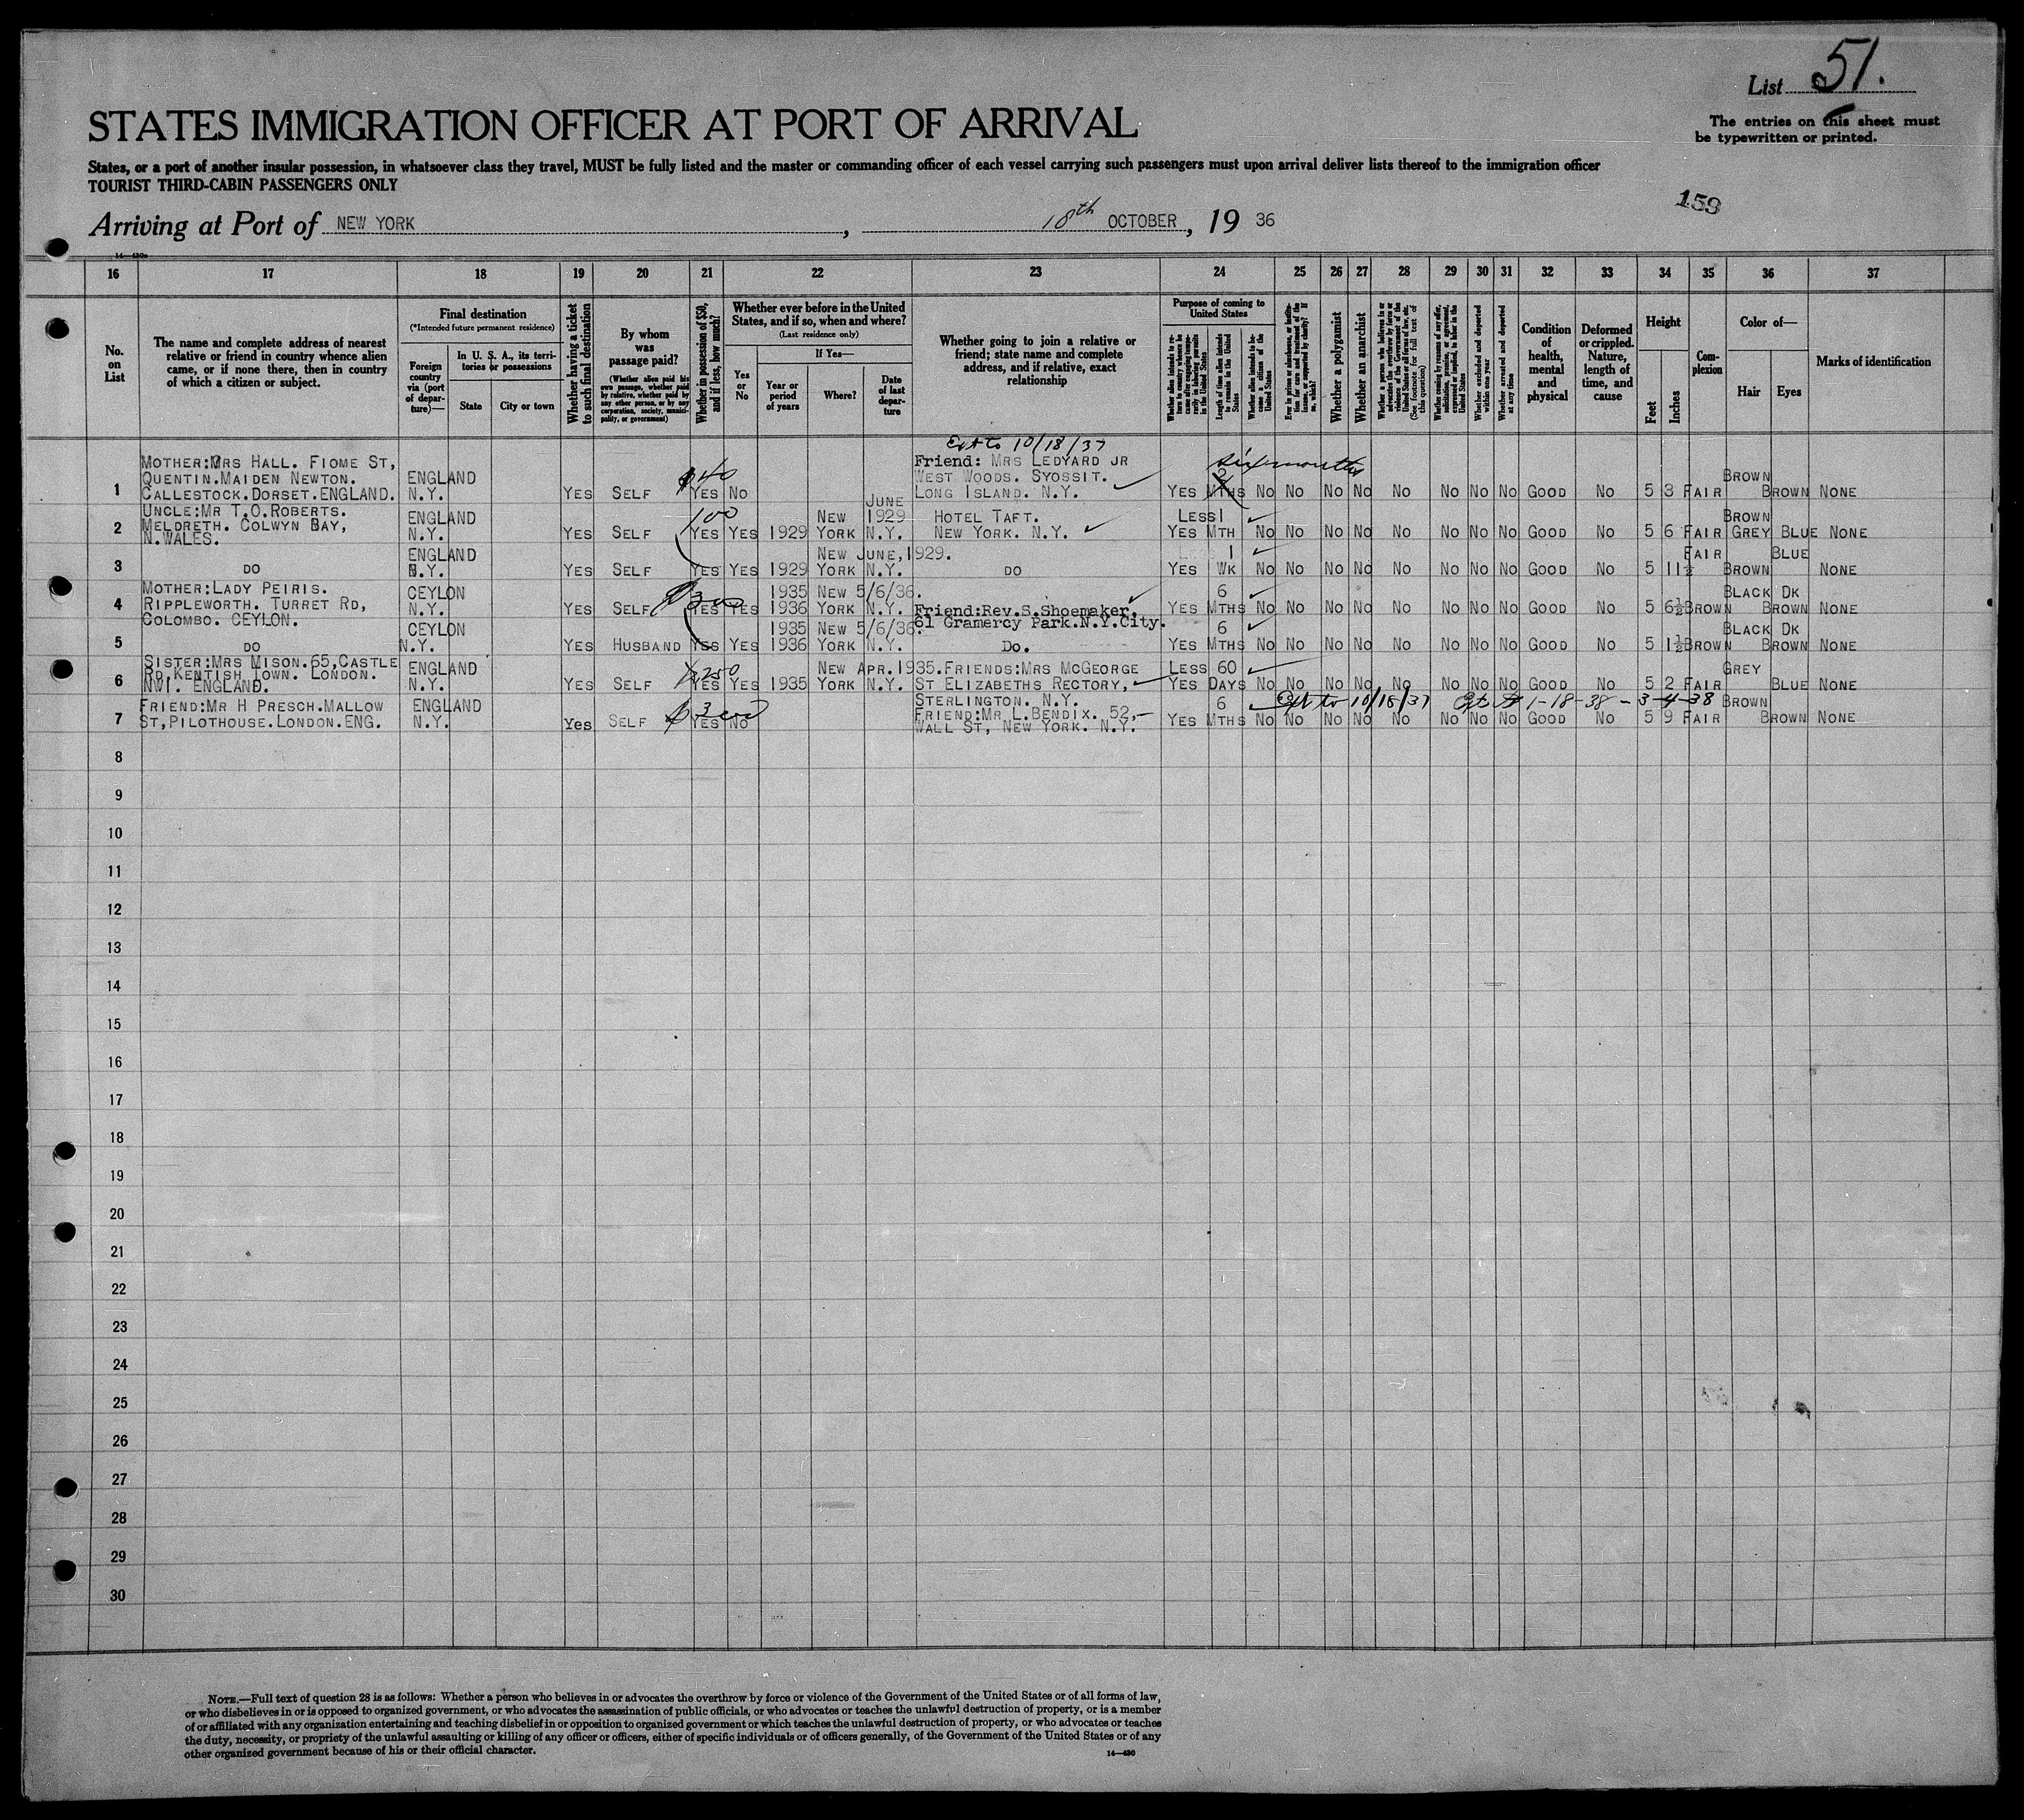 List 51.
The entries on this sheet must
be typewritten or printed.
STATES IMMIGRATION OFFICER AT PORT OF ARRIVAL
States, or a port of another insular possession, in whatsoever class they travel, MUST be fully listed and the master or commanding officer of each vessel carrying such passengers must upon arrival deliver lists thereof to the immigration officer
TOURIST THIRD-CABIN PASSENGERS ONLY
159
Arriving at Port of NEW YORK, 18th OCTOBER, 19 36
16 17 18 19 20 21 22 23 24 25 26 27 28 29 30 31 32 33 34 35 36 37
No. on List
The name and complete address of nearest
relative or friend in country whence alien
came, or if none there, then in country
of which a citizen or subject.
Final destination
(*Intended future permanent residence)
Foreign country via (port of departure)—
In U. S. A., its territories or possessions
State
City or town
Whether having a ticket to such final destination
By whom was passage paid?
(Whether alien paid his own passage, whether paid by relative, whether paid by any other person, or by any corporation, society, municipality, or government)
Whether in possession of $50, and if less, how much?
Whether ever before in the United States, and if so, when and where?
(Last residence only)
Yes or No
If Yes—
Year or period of years
Where?
Date of last departure
Whether going to join a relative or
friend; state name and complete
address, and if relative, exact
relationship
Purpose of coming to United States
Length of time alien intends to remain in the United States
Whether alien intends to become a citizen of the United States
Whether a polygamist
Whether an anarchist
Whether excluded and deported within one year
Whether arrested and deported at any time
Condition of health, mental and physical
Deformed or crippled. Nature, length of time, and cause
Height
Feet
Inches
Complexion
Color of—
Hair
Eyes
Marks of identification
Ext to 10/18/37
1 MOTHER:MRS HALL. FIOME ST,
QUENTIN.MAIDEN NEWTON.
CALLESTOCK.DORSET.ENGLAND.
ENGLAND
N.Y. YES SELF $40 YES NO
Friend: MRS LEDYARD JR
WEST WOODS. SYOSSIT.
LONG ISLAND. N.Y.
six months
YES 2 MTHS NO NO NO NO NO NO NO NO GOOD NO 5 3 FAIR BROWN BROWN NONE
2 UNCLE:MR T.O.ROBERTS.
MELDRETH. COLWYN BAY,
N.WALES.
ENGLAND
N.Y. YES SELF 100 YES YES 1929 NEW YORK N.Y. JUNE 1929
HOTEL TAFT.
NEW YORK. N.Y.
LESS 1
YES MTH NO NO NO NO NO NO NO NO GOOD NO 5 6 FAIR BROWN GREY BLUE NONE
3 DO
ENGLAND
N.Y. YES SELF YES YES 1929 NEW YORK JUNE,1929. N.Y. DO
1
YES WK NO NO NO NO NO NO NO NO GOOD NO 5 11½ FAIR BROWN BLUE NONE
4 MOTHER:LADY PEIRIS.
RIPPLEWORTH. TURRET RD,
COLOMBO. CEYLON.
CEYLON
N.Y. YES SELF 300 YES YES 1935 1936 NEW YORK 5/6/36. N.Y.
Friend:Rev.S.Shoemaker.
61 Gramercy Park.N.Y.City.
6
YES MTHS NO NO NO NO NO NO NO NO GOOD NO 5 6½ BROWN BLACK DK BROWN NONE
5 DO
CEYLON
N.Y. YES HUSBAND YES YES 1935 1936 NEW YORK 5/6/36. N.Y. Do.
6
YES MTHS NO NO NO NO NO NO NO NO GOOD NO 5 1½ BROWN BLACK DK BROWN NONE
6 SISTER:MRS MISON.65,CASTLE
RD,KENTISH TOWN. LONDON.
NW1. ENGLAND.
ENGLAND
N.Y. YES SELF 250 YES YES 1935 NEW YORK APR.1935. N.Y.
FRIENDS:MRS MCGEORGE
ST ELIZABETHS RECTORY,
STERLINGTON. N.Y.
LESS 60
YES DAYS NO NO NO NO NO NO NO NO GOOD NO 5 2 FAIR GREY BLUE NONE
Ext to 10/18/37 Ext to 1-18-38 - 3-4-38
7 FRIEND:MR H PRESCH.MALLOW
ST,PILOTHOUSE.LONDON.ENG.
ENGLAND
N.Y. Yes SELF $300 YES NO
FRIEND:MR L.BENDIX. 52,
WALL ST, NEW YORK. N.Y.
6
YES MTHS NO NO NO NO NO NO NO NO GOOD NO 5 9 FAIR BROWN BROWN NONE
8
9
10
11
12
13
14
15
16
17
18
19
20
21
22
23
24
25
26
27
28
29
30
NOTE.—Full text of question 28 is as follows: Whether a person who believes in or advocates the overthrow by force or violence of the Government of the United States or of all forms of law,
or who disbelieves in or is opposed to organized government, or who advocates the assassination of public officials, or who advocates or teaches the unlawful destruction of property, or is a member
of or affiliated with any organization entertaining and teaching disbelief in or opposition to organized government or which teaches the unlawful destruction of property, or who advocates or teaches
the duty, necessity, or propriety of the unlawful assaulting or killing of any officer or officers, either of specific individuals or of officers generally, of the Government of the United States or of any
other organized government because of his or their official character.
14—430